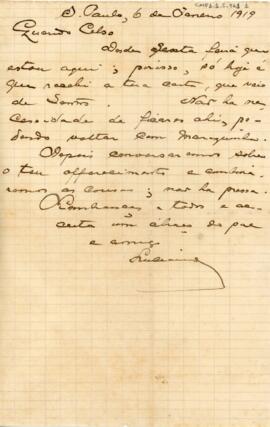 S. Paulo, 6 de Janeiro 1919
Querido Celso
Onde feira é que
estou aqui; por isso, só hoje é
que recebi a tua carta, que veio
de Santos. Não ha ne-
cessidade de ficares ahi, po-
dendo voltar com Mariquinha.
Depois conversaremos sobre
o teu offerecimento e combina-
remos as cousas; não ha pressa.
Lembranças a todos e ac-
ceita um abraço do pae
e amigo